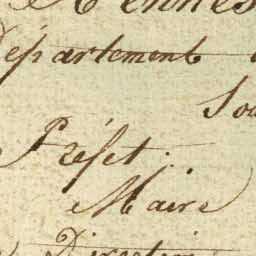 Rennes
Département
Sou
Préfet.
Maire
Direction